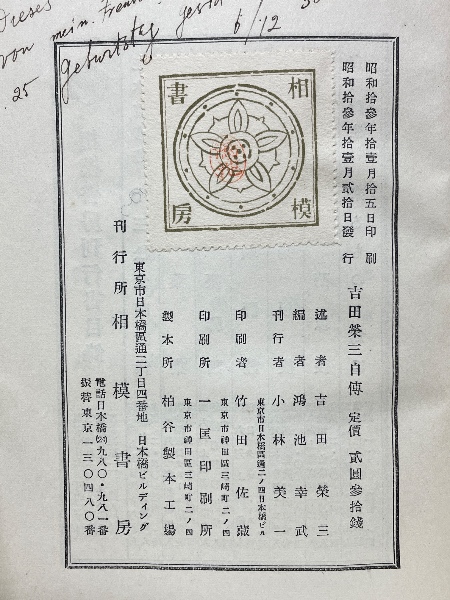 Dieses
von mein. Freund
25 Geburtstag 6/12
相模書房
昭和拾參年拾壹月拾五日印刷
昭和拾參年拾壹月貳拾日發行
吉田榮三自傳 定價 貳圓參拾錢
述者 吉田榮三
編者 鴻池幸武
刊行者 小林美一
東京市日本橋區通二ノ四日本橋ビル
印刷者 竹田佐藏
東京市神田區三崎町二ノ四
印刷所 一匡印刷所
東京市神田區三崎町二ノ四
製本所 柏谷製本工場
東京市日本橋區通二丁目四番地 日本橋ビルディング
刊行所 相模書房
電話日本橋(24)九八〇・九八一番
振替東京一三〇四八〇番